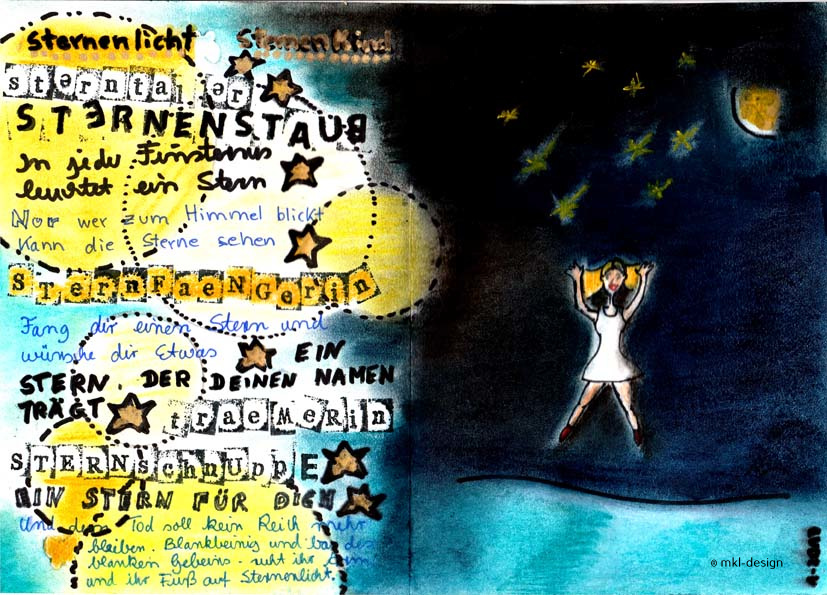 sternenlicht Sternenkind
sterntaler
STERNENSTAUB
In jeder Finsternis
leuchtet ein Stern
Nur wer zum Himmel blickt
kann die Sterne sehen
STernFaeNGerin
Fang dir einen Stern und
wünsche dir Etwas
EIN
STERN, DER DEINEN NAMEN
TRÄGT
traeMeRin
STERNschnuppE
EIN STERN FÜR DICH
Und dem Tod soll kein Reich mehr
bleiben. Blankbeinig und bar des
blanken Gebeins - ruht ihr Arm
und ihr Fuß auf Sternenlicht.
© mkl-design